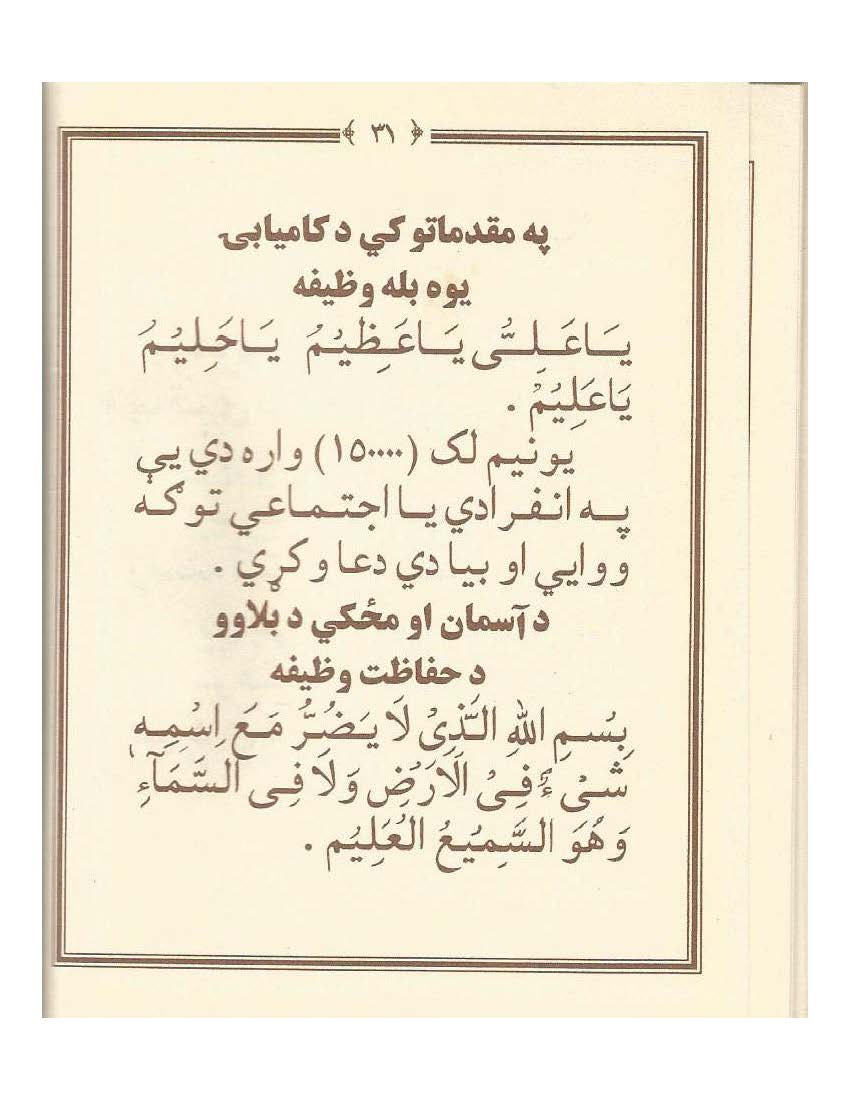 ﴿ ۳۱ ﴾
په مقدماتو کي د کامیابۍ
یوه بله وظیفه
یَـاعَـلِـیُّ یَـاعَـظِیْـمُ یَـاحَـلِیْـمُ
یَاعَلِیْمُ .
یو نیم لک (۱۵۰۰۰۰) واره دي یې
پـه انـفـرادي یـا اجتـمـاعي تـوګـه
ووایي او بیا دي دعا وکړي .
د آسمان او مځکي د بلاوو
د حفاظت وظیفه
بِسْمِ اللهِ الَّذِیْ لَا یَضُرُّ مَعَ اِسْمِهٖ
شَیْءٌ فِیْ الْاَرْضِ وَلَا فِی السَّمَآءِ
وَهُوَ السَّمِیْعُ الْعَلِیْم .